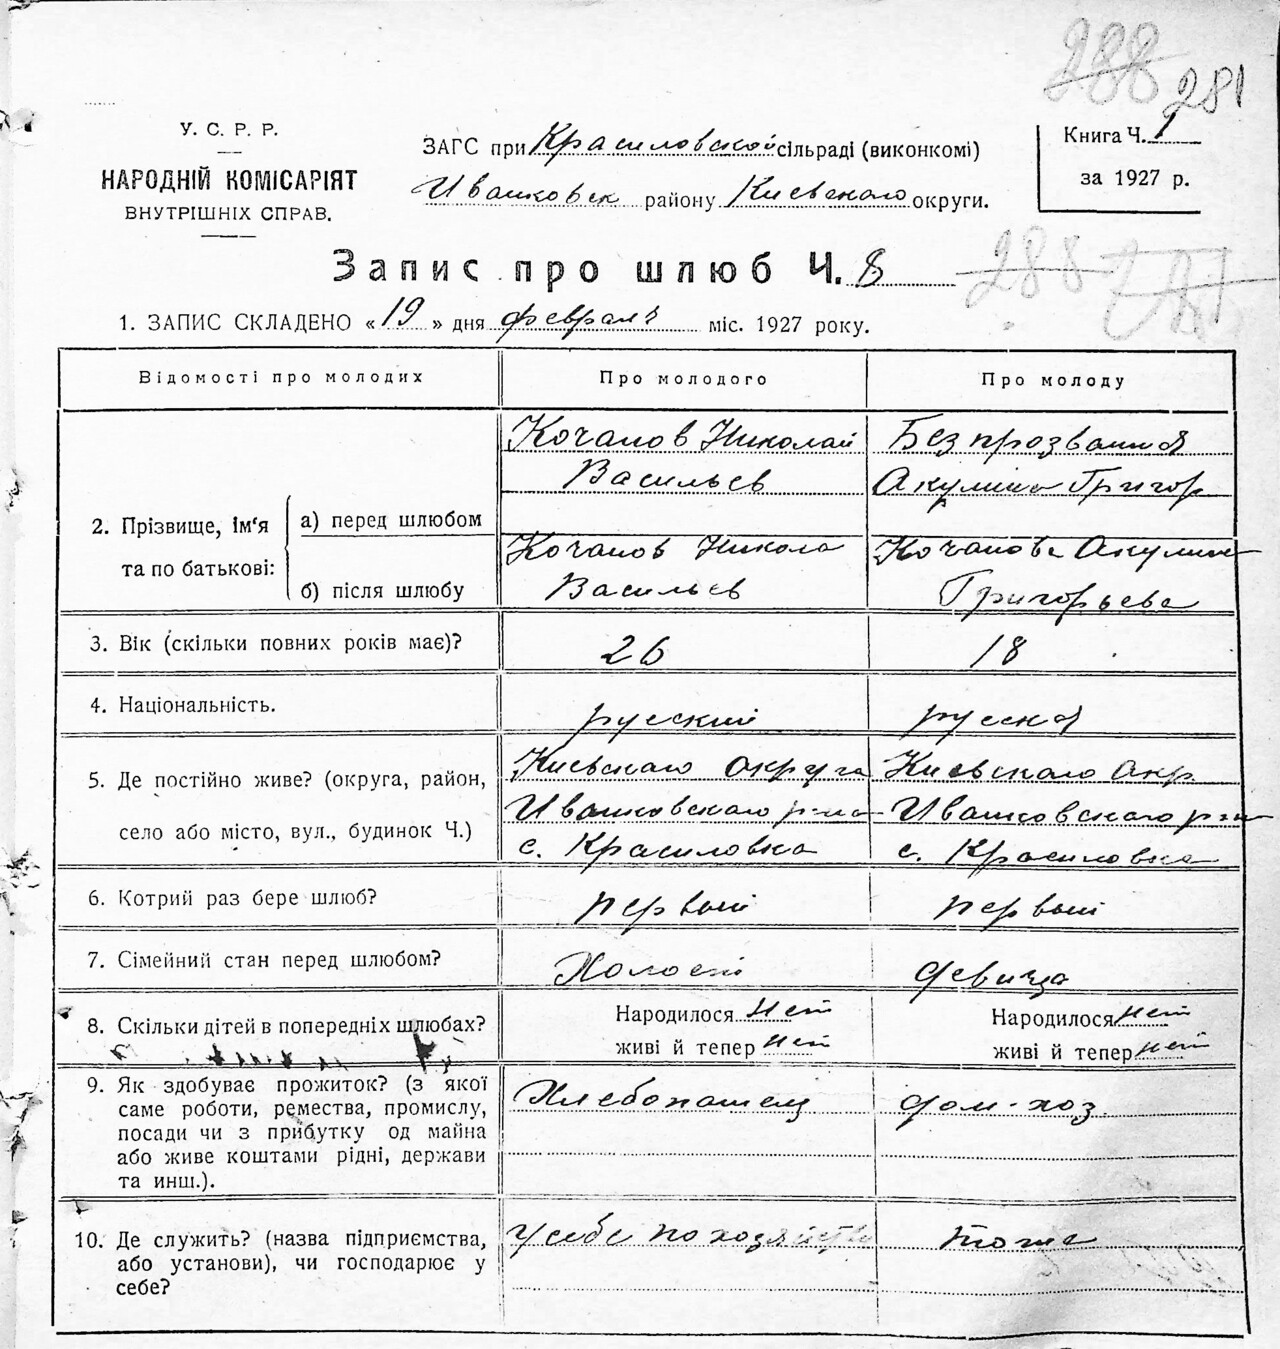 288
281
У. С. Р. Р.
НАРОДНІЙ КОМІСАРІЯТ
ВНУТРІШНІХ СПРАВ.
ЗАГС при Красиловской сільраді (виконкомі)
Иванковск району Киевскаго округи.
Книга Ч. 1
за 1927 р.
Запис про шлюб Ч. 8
288
1. ЗАПИС СКЛАДЕНО «19» дня февраля міс. 1927 року.
Відомості про молодих Про молодого Про молоду
2. Прізвище, ім'я та по батькові:
а) перед шлюбом
Кочанов Николай
Васильев
Безпрозвання
Акулина Григор
б) після шлюбу
Кочанов Никола
Васильев
Кочанова Акулина
Григорьева
3. Вік (скільки повних років має)? 26 18
4. Національність. русский русская
5. Де постійно живе? (округа, район,
село або місто, вул., будинок Ч.)
Киевскаго округа
Иванковскаго р-на
с. Красиловка
Киевскаго окр.
Иванковскаго р-на
с. Красиловка
6. Котрий раз бере шлюб? первый первый
7. Сімейний стан перед шлюбом? Холост девица
8. Скільки дітей в попередніх шлюбах?
Народилося нет
живі й тепер нет
Народилося нет
живі й тепер нет
9. Як здобуває прожиток? (з якої
саме роботи, ремества, промислу,
посади чи з прибутку од майна
або живе коштами рідні, держави
та инш.).
Хлебопашец
дом-хоз.
10. Де служить? (назва підприємства,
або установи), чи господарює у
себе?
у себе по хозяйству
тоже